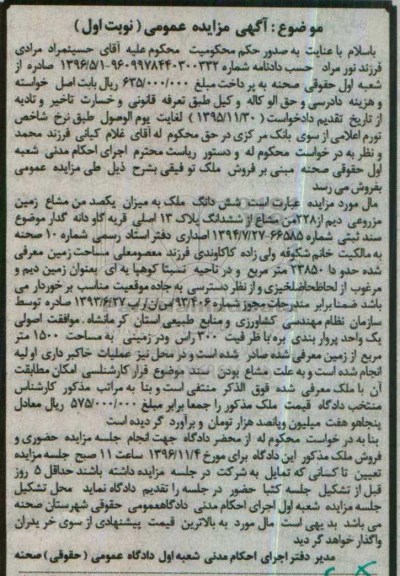 موضوع : آگهی مزایده عمومی ( نوبت اول )
باسلام با عنایت به صدور حکم محکومیت محکوم علیه آقای حسینمراد مرادی
فرزند نور مراد حسب دادنامه شماره ۹۶۰۹۹۷۸۴۴۰۳۰۰۳۳۲-۱۳۹۶/۵/۱ صادره از
شعبه اول حقوقی صحنه به پرداخت مبلغ ۶۳۵/۰۰۰/۰۰۰ ریال بابت اصل خواسته
و هزینه دادرسی و حق الو کاله و کیل طبق تعرفه قانونی و خسارت تاخیر و تادیه
از تاریخ تقدیم دادخواست ( ۱۳۹۵/۱۱/۳۰ ) لغایت یوم الوصول طبق نرخ شاخص
تورم اعلامی از سوی بانک مر کزی در حق محکوم له آقای غلام کیانی فرزند محمد
و نظر به در خواست محکوم له و دستور ریاست محترم اجرای احکام مدنی شعبه
اول حقوقی صحنه مبنی بر فروش ملک تو قیفی بشرح ذیل طی مزایده عمومی
بفروش می رسد
مال مورد مزایده عبارت است شش دانگ ملک به میزان یکصد من مشاع زمین
مزروعی دیم از۲۲۸من مشاع از ششدانگ پلاک ۱۳ اصلی قریه گاو دانه گدار موضوع
سند ثبتی شماره ۶۶۵۸۵-۱۳۹۴/۷/۲۷ اصداری دفتر اسناد رسمی شماره ۱۰ صحنه
به مالکیت خانم شکوفه ولی زاده کاکاوندی فرزند معصومعلی مساحت زمین معرفی
شده حدو دا ۲۳۸۵۰ متر مربع و در ناحیه نسبتا کوهپا یه ای بعنوان زمین دیم و
مرغوب از لحاظحاصلخیزی و از نظر دسترسی به جاده موقعیت مناسب بر خوردار می
باشد ضمنا برابر مندرجات مجوز شماره ۹۳/۴۰۶ ص ن ر ب ۱۳۹۳/۶/۲۷ صادره توسط
سازمان نظام مهندسی کشاورزی و منابع طبیعی استان کر مانشاه . موافقت اصولی
یک واحد پروار بندی بره با ظر فیت ۳۰۰ راس ودر زمینی به مساحت ۱۵۰۰ متر
مربع از زمین معرفی شده صادر شده است و در محل نیز عملیات خاکبر داری او لیه
انجام شده است و به علت مشاع بودن سند موضوع قرار کارشناسی امکان مطابقت
آن با ملک معرفی شده فوق الذکر منتفی است و بنا به مراتب مذکور کارشناس
منتخب دادگاه قیمت ملک مذکور را جمعا برابر مبلغ ۵۷۵/۰۰۰/۰۰۰ ریال معادل
پنجاهو هفت میلیون وپانصد هزار تومان و برآورد گر دیده است
بنا به در خواست محکوم له از محضر دادگاه جهت انجام جلسه مزایده حضوری و
فروش ملک مذکور این دادگاه برای مورخ ۱۳۹۶/۱۱/۴ ساعت ۱۱ صبح جلسه مزایده
تعیین تا کسانی که تمایل به شرکت در جلسه مزایده داشته باشند حداقل ۵ روز
قبل از تشکیل جلسه کتبا حضور در جلسه را تقدیم دادگاه نماید محل تشکیل
جلسه مزایده شعبه اول اجرای احکام مدنی دادگاهعمومی حقوقی شهرستان صحنه
می باشد بد یهی است مال مورد به بالاترین قیمت پیشنهادی از سوی خر یدران
واگذار خواهد گر دید
مدیر دفتر اجرای احکام مدنی شعبه اول دادگاه عمومی ( حقوقی ) صحنه